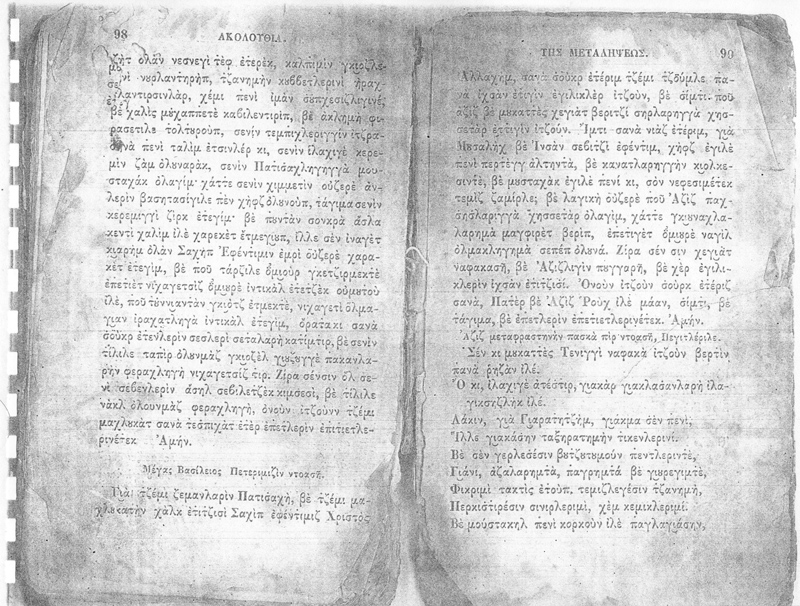 98
ΑΚΟΛΟΥΘΙΑ.
ζὴτ ὀλὰν νεσνεγὶ τὲφ ἐτερὲκ, καλπιμὶν
νὶ νουρλαντηρὴπ, τζανημὴν κουββετλερινὶ
χέμι πενὶ ἰμὰν
βὲ χαλὶς μουχαππετὲ καβιλεντιρὶπ, βὲ ἀκλημὴ φι-
ρασετιλε τολτουροὺπ, σενὶν τεμπιχλεριγγὶν ἰτζρα-
πενὶ ταλὶμ ἐτσινλὲρ κι, σενὶν ἰλαχιγὲ κερε-
μὶν ζὰμ ὀλουναρὰκ, σενὶν Πατισαχληγηγγὰ μου-
σταχὰκ ὀλαγὶμ· χάττε σενὶν χιμμετὶν οὐζερὲ ἀν-
λερὶν βασητασίγιλε πὲν χὴφζ ὀλουνοὺπ, τάγιμα σενὶν
κερεμιγγὶ ζὶρκ ἐτεγίμ· βὲ πουντὰν σονκρὰ ἄσλα
κεντὶ χαλὶμ ἰλὲ χαρεκὲτ ἐτμεγιοὺπ, ἴλλε σὲν ἰναγὲτ
κιαρὴμ ὀλὰν Σαχὴπ Ἐφέντιμιν ἐμρὶ οὐζερὲ χαρα-
κὲτ ἐτεγὶμ, βὲ ποῦ τάρζιλε ὀμιοὺρ γκετζιρμεκτὲ
ἐπετιὲτ νιχαγετσὶζ ὀμουρὲ ἰντικὰλ ἐτετζὲκ οὐμουτοὺ
ἰλὲ, ποῦ τουννιαντὰν γκιοτζ ἐτμεκτὲ, νιχαγετὶ ὀλμα-
γιὰν ἰραχατληγὰ ἰντικὰλ ἐτεγὶμ, ὀρατακι σανὰ
σοὺκρ ἐτενλερὶν σεσλερὶ σεταλαρὴ κατίμτιρ, βὲ σενὶν
τιλιλε ταπὶρ ὀλουνμὰζ γκιοζὲλ γιουζουγγὲ πακανλα-
ρὴν φεραχληγὴ νιχαγετσὶζ τιρ. Ζίρα σένσιν ὂλ σε-
νὶ σεβενλερὶν ἀσὴλ σεβιλετζὲκ κιμσεσὶ, βὲ τιλιλε
νακλ ὀλουνμὰζ φεραχληγὴ, ὀνοὺν ἰτζοὺνν τζέμι
μαχλουκὰτ σανὰ τεσπιχὰτ ἐτὲρ ἐπετλερὶν ἐπιτιετλε-
ρινέτεκ Ἀμήν.
Μέγας Βασίλειος Πετεριμιζὶν ντοασῆ.
Γιὰ τζέμι ζεμανλαρὶν Πατισαχὴ, βὲ τζέμι μα-
χλουκατὴν χὰλκ ἐτιτζισὶ Σαχὶπ ἐφέντιμιζ Χριστὸς
ΤΗΣ ΜΕΤΑΛΗΨΕΩΣ.
99
Ἀλλαχὴμ, σανὰ σοὺκρ ἐτέριμ τζέμι τζούμλε πα-
νὰ ἰχσὰν ἐτιγὶν ἐγιλικλὲρ ἰτζοὺν, βὲ σίμτι ποῦ
ἀζὶζ βὲ μυκαττὲς χεγιὰτ βεριτζὶ σηρλαρηγγὰ χησ-
σετὰρ ἐττιγὶν ἰτζούν. Ἴμτι σανὰ νιὰζ ἐτέριμ, γιὰ
Μουσαλὴχ βὲ Ἰνσὰν σεβιτζὶ ἐφέντιμ, χὴφζ ἐγιλὲ
πενὶ περτεγγ ἀλτηντὰ, βὲ κανατλαρηγγὴν κιολκε-
σιντὲ, βὲ μυσταχὰκ ἐγιλὲ πενὶ κι, σὸν νεφεσιμέτεκ
τεμὶζ ζαμίρλε· βὲ λαγικὴ οὐζερὲ ποῦ Ἀζὶζ παχ-
σησλαριγγὰ χησσετὰρ ὀλαγὶμ, χάττε γκιουναχλα-
λαρημὰ μαγφιρὲτ βερὶπ, ἐπετιγὲτ ὀμιουρὲ ναγὶλ
ὀλμακληγημὰ σεπὲπ ὀλουνά. Ζίρα σέν σιν χεγιὰτ
ναφακασῆ, βὲ Ἀζιζλιγὶν πουγγαρῆ, βὲ χὲρ ἐγιλι-
κλερὶν ἰχσὰν ἐτιτζισί. Ὀνοὺν ἰτζοὺν σοὺρκ ἐτερὶζ
σανὰ, Πατὲρ βὲ Ἀζὶζ Ῥοὺχ ἰλὲ μάαν, σίμτι, βὲ
τάγιμα, βὲ ἐπετλερὶν ἐπετιετλερινέτεκ. Ἀμήν.
Ἀζὶζ μεταφραστηνὴν πασκὰ πὶρ ντοασῆ, Πεγιτλέριλε.
Σὲν κὶ μυκαττὲς Τενιγγὶ ναφακὰ ἰτζοὺν βερτὶν
πανὰ ῥηζὰν ἰλέ.
Ὁ κὶ, ἰλαχιγὲ ἀτέστιρ, γιακὰρ γιακλασανλαρὴ ἰλα-
γικσηζλὴκ ἰλέ.
Λάκιν, γιὰ Γιαρατητζὴμ, γιάκμα σὲν πενὶ,
Ἴλλε γιακάσην ταξηρατημὴν τικενλερινί.
Βὲ σὲν γερλεσέσιν βουτζουτουμοὺν πεντλεριντὲ,
Γιάνι, ἀζαλαρημτὰ, παγρημτὰ βὲ γιουρεγιμτὲ,
Φικριμὶ τακτὶς ἐτοὺπ, τεμιζλεγέσιν τζανημὴ,
Περκιστιρέσιν σινιρλεριμὶ, χὲμ κεμικλεριμί.
Βὲ μούστακηλ πενὶ κορκοὺν ἰλὲ παγλαγιάσην,